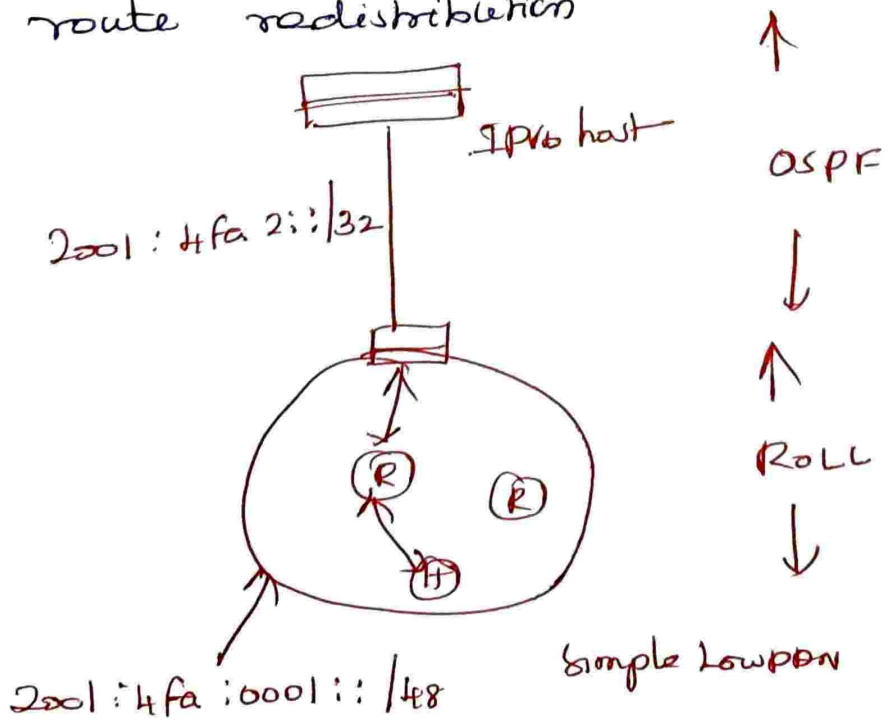 route redistribution
IPv6 host
OSPF
2001:4fa2::/32
R
R
ROLL
H
Simple LowPAN
2001:4fa:0001::/48